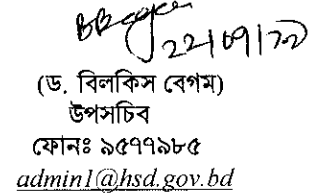 22/09/20
(ড. বিলকিস বেগম)
উপসচিব
ফোনঃ ৯৫৭৭৯৮৫
admin1@hsd.gov.bd